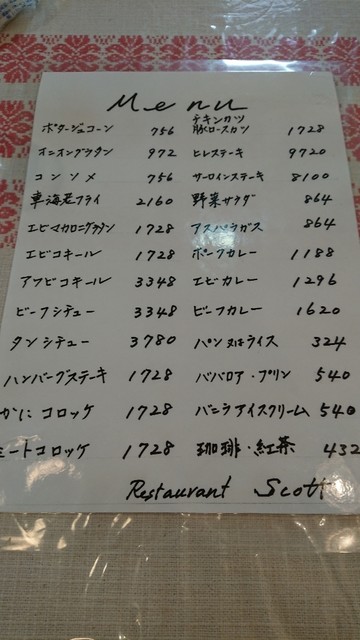 Menu
ポタージュコーン 756
オニオングラタン 972
コンソメ 756
車海老フライ 2160
エビマカロニグラタン 1728
エビコキール 1728
アワビコキール 3348
ビーフシチュー 3348
タンシチュー 3780
ハンバーグステーキ 1728
かにコロッケ 1728
ミートコロッケ 1728
チキンカツ
豚ロースカツ 1728
ヒレステーキ 9720
サーロインステキ 8100
野菜サラダ 864
アスパラガス 864
ポークカレー 1188
エビカレー 1296
ビーフカレー 1620
パン又はライス 324
ババロア・プリン 540
バニラアイスクリーム 540
珈琲・紅茶 432
Restaurant Scott